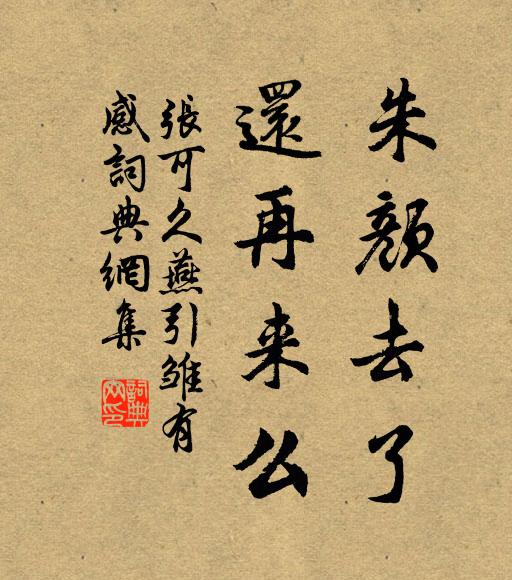 朱顏去了
還再来么
張可久燕引雏有
感詞典網集
詞典
网印